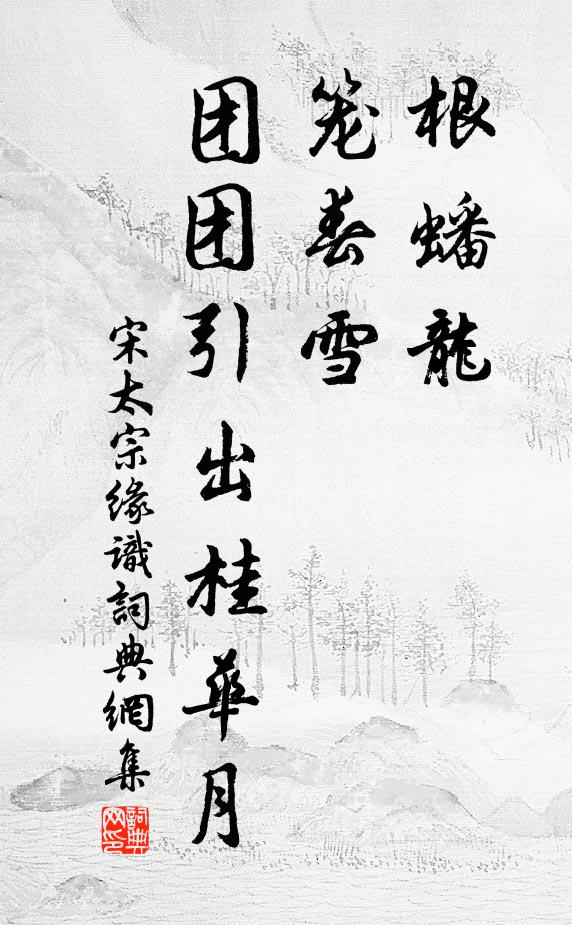 根蟠龍
笼春雪
团团引出桂華月
宋太宗缘識詞典網集
詞典网印